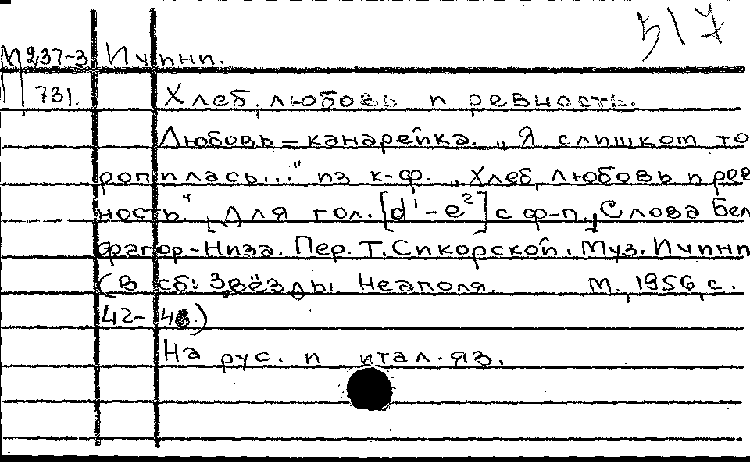 517
М 237-3 Ичини.
731. Хлеб, любовь и ревность.
Любовь = канарейка. „Я слишком то
ропилась..." из к-ф. „Хлеб, любовь и рев
ность." [Для гол. [d¹-e²] с ф-п.] Слова Бел
фагор-Низа. Пер. Т. Сикорской. Муз. Ичини
(В сб: Звёзды Неаполя. М., 1956, с.
42-43.)
На рус. и итал. яз.